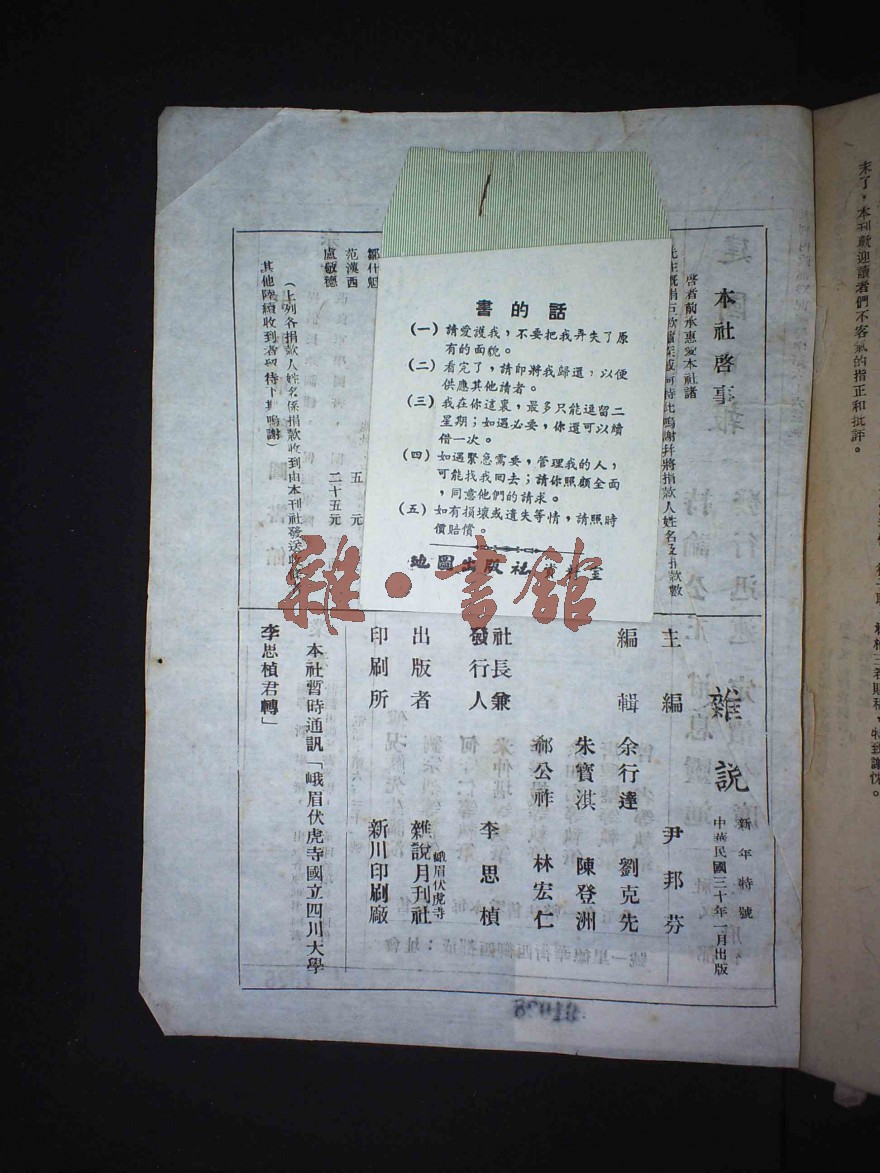 本社啓事
啓者前承惠愛本社諸
鄒仕魁
范漢西
五元
盧敏德
二十五元
(上列各捐款人姓名係捐款收到由本刊社發送
其他陸續收到者留待下期鳴謝)
書的話
(一)請愛護我,不要把我弄失了原
有的面貌。
(二)看完了,請即將我歸還,以便
供應其他讀者。
(三)我在你這裏,最多只能逗留二
星期;如遇必要,你還可以續
借一次。
(四)如遇緊急需要,管理我的人,
可能找我回去;請你照顧全面
,同意他們的請求。
(五)如有損壞或遺失等情,請照時
價賠償。
地圖出版社
雜·書館
雜說
新年特號
中華民國三十年一月出版
主編 尹邦芬
編輯 余行達 劉克先
朱寶淇 陳登洲
郗公祚 林宏仁
社長兼
發行人 李思楨
出版者 峨眉伏虎寺
雜說月刊社
印刷所 新川印刷廠
本社暫時通訊「峨眉伏虎寺國立四川大學
李思楨君轉」
末了,本刊歡迎讀者們不客氣的指正和批評。